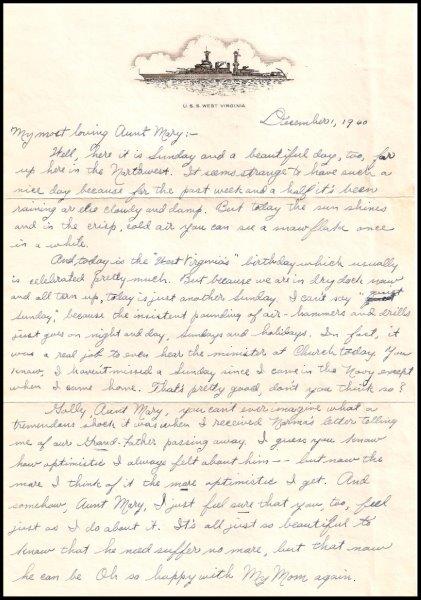 U.S.S. WEST VIRGINIA
December 1, 1940
My most loving Aunt Mary:-
Well, here it is Sunday and a beautiful day, too, for
up here in the Northwest. It seems strange to have such a
nice day because for the past week and a half it's been
raining or else cloudy and damp. But today the sun shines
and in the crisp, cold air you can see a snow flake once
in a while.
And, today is the "West Virginia's" birthday which usually
is celebrated pretty much. But because we are in dry dock now
and all torn up, today is just another Sunday. I can't say "quiet
Sunday," because the insistent pounding of air-hammers and drills
just goes on night and day, Sundays and holidays. In fact, it
was a real job to even hear the minister at Church today. You
know, I haven't missed a Sunday since I came in the Navy except
when I came home. That's pretty good, don't you think so?
Golly, Aunt Mary, you can't ever imagine what a
tremendous shock it was when I received Norma's letter telling
me of our Grand-Father passing away. I guess you know
how optimistic I always felt about him -- but now the
more I think of it the more optimistic I get. And
somehow, Aunt Mary, I just feel sure that you, too, feel
just as I do about it. It's all just so beautiful to
know that he need suffer no more, but that now
he can be Oh so happy with My Mom again.